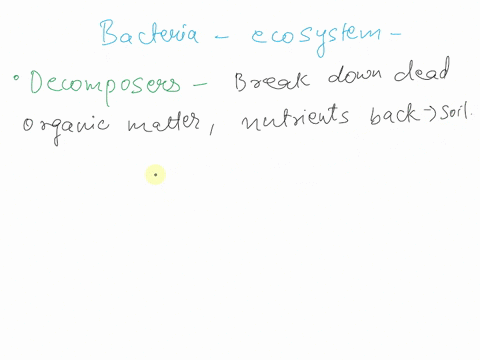 Bacteria - ecosystem -
• Decomposers - Break down dead
organic matter, nutrients back → soil.